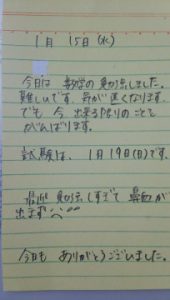 1月 15日(水)
今日は 数学の 勉強しました。
難しいです。気が遠くなります
でも 今 出来る限りのことで
がんばります。
試験は、1月19日(日)です。
最近 勉強しすぎて 鼻血が
出ます
今日も ありがとうございました。